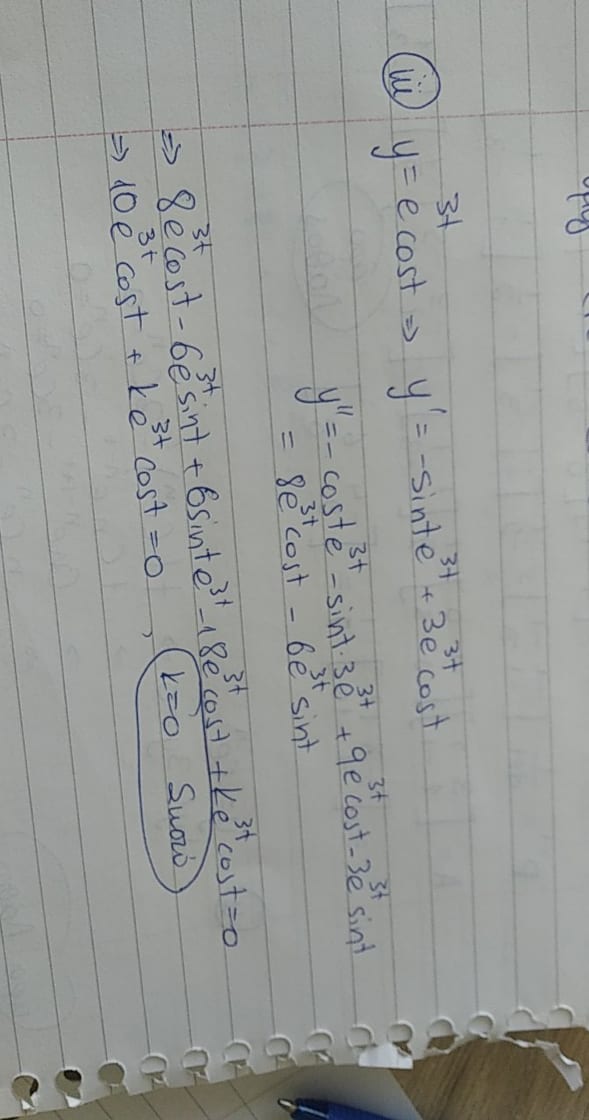 iii y = e^{3t} cost ⇒ y' = -sint e^{3t} + 3e^{3t} cost
y'' = -cost e^{3t} - sint·3e^{3t} + 9e^{3t} cost - 3e^{3t} sint
= 8e^{3t} cost - 6e^{3t} sint
⇒ 8e^{3t} cost - 6e^{3t} sint + 6sint e^{3t} - 18e^{3t} cost + ke^{3t} cost = 0
⇒ 10e^{3t} cost + ke^{3t} cost = 0, k=0